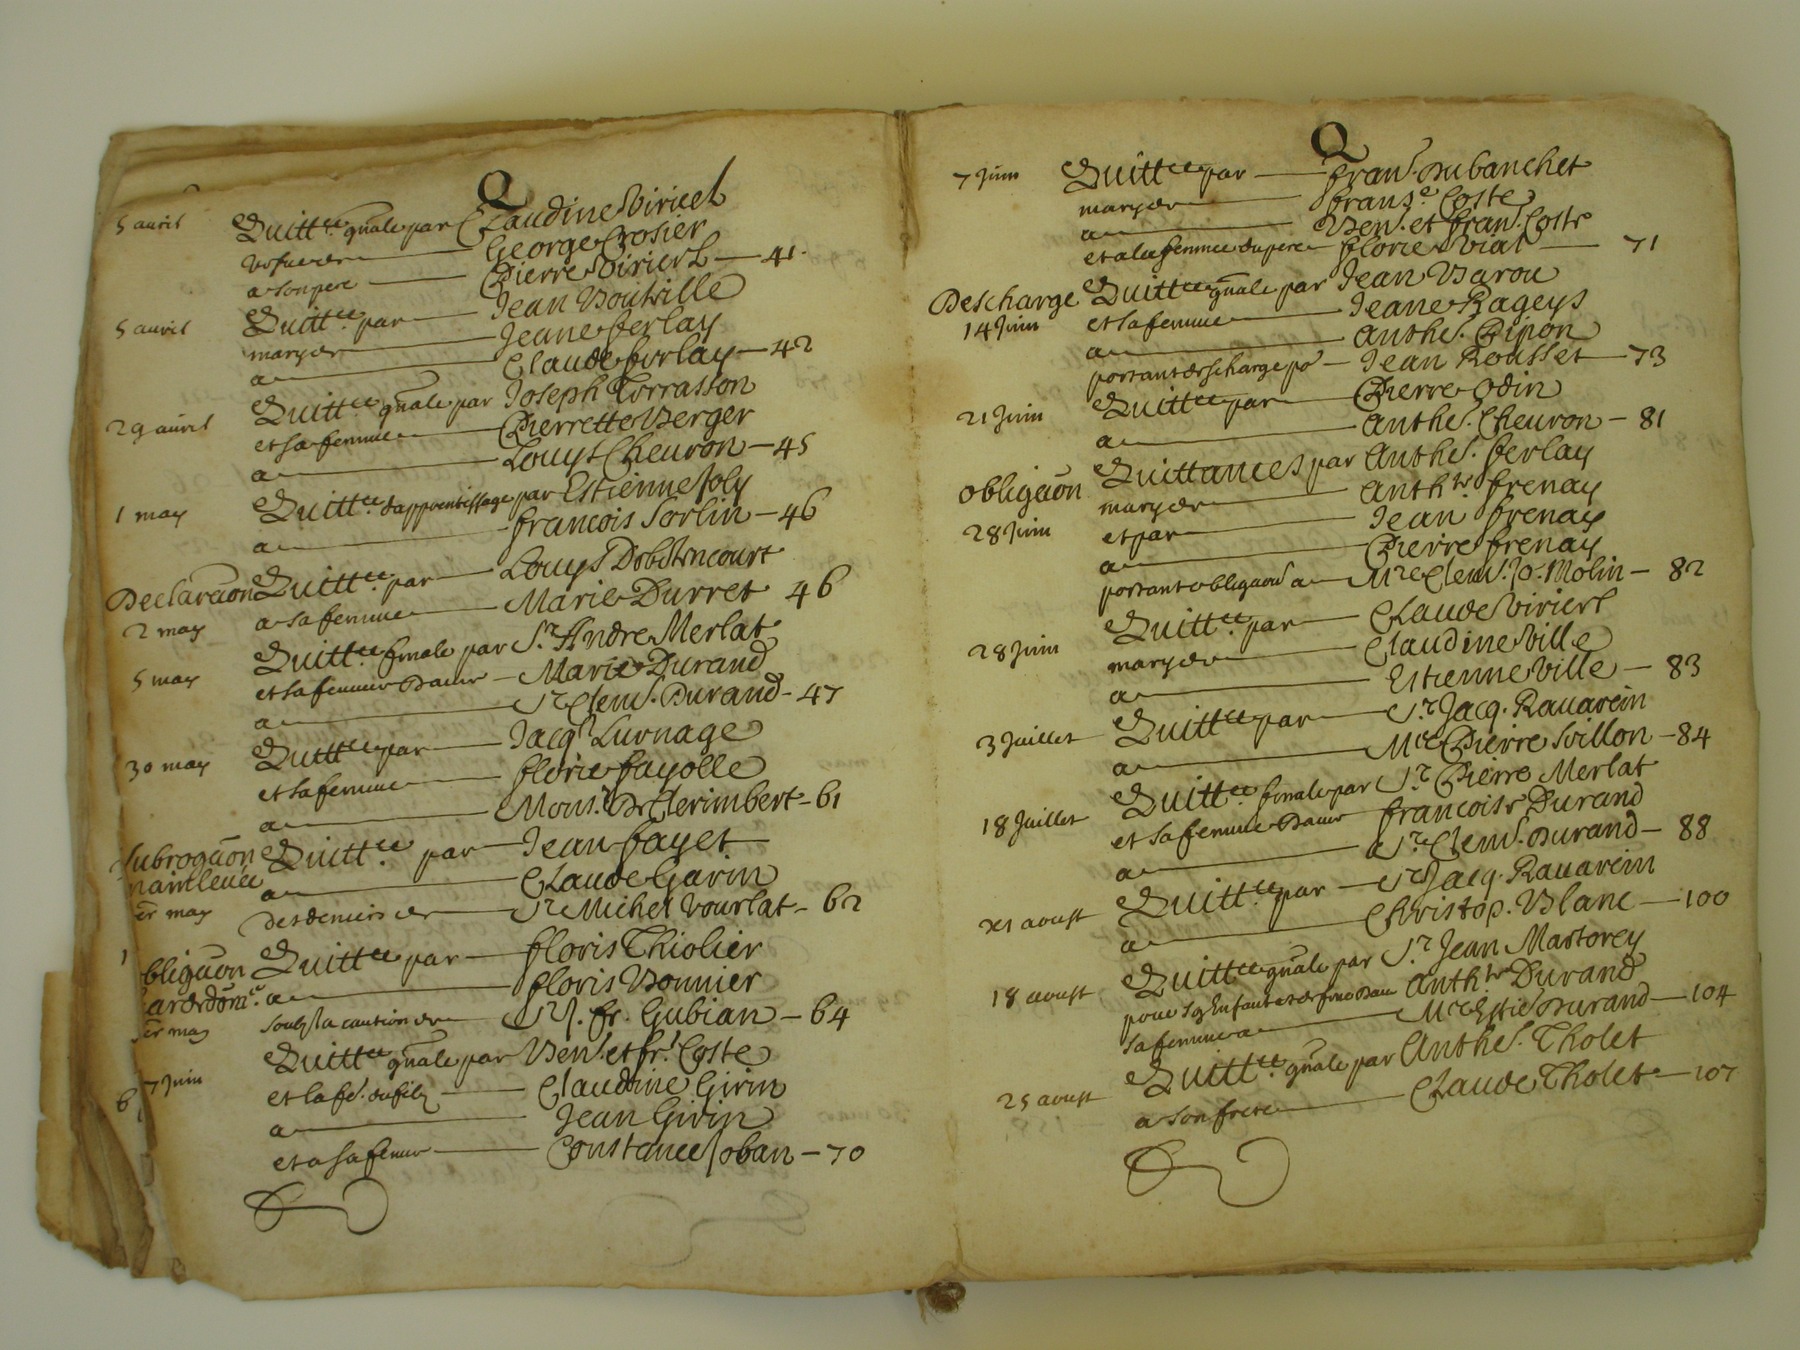 Q
5 avril Quitt.ce gnale par Claudine Viricel
vefue de George Crosier
a son pere Pierre Viricel — 41.
5 avril Quitt.ce par Jean Boutville
mary de Jeane ferlay
a Claude ferlay — 42
29 avril Quitt.ce gnale par Joseph Terrasson
et sa femme Pierrette Berger
a Louys Cheuron — 45
1 may Quitt.ce d'apprentissage par Estienne Joly
a francois Sorlin — 46
Declaraon Quitt.ce par Louys
2 may a sa femme Marie Durret 46
5 may Quitt.ce finale par S.r Andre Merlat
et sa femme Marie Durand
a S.r Clem.t Durand — 47
30 may Quitt.ce par Jacq. Lurnage
et sa femme florie fayolle
a Mons.r De Clerimbert — 61
Subrogaon Quitt.ce par Jean fayet
mainleuée a Claude Gavin
er may des deniers de S.r Michel Vourlat — 62
bligaon Quitt.ce par floris Thiolier
a floris Bonnier
er may soubs la caution de S.r J. fr. Gubian — 64
7 Juin Quitt.ce gnale par Ben.t et fr.s Coste
et la fe. du filz Claudine Girin
a Jean Girin
et a sa femme Constance Joban — 70
Q
7 Juin Quitt.ce par fran.s Dubanchet
mary de frans.e Coste
a Ben.t et fran.s Coste
et a la femme du pere florie Viat — 71
Descharge Quitt.ce gnale par Jean Barou
14 Juin et sa femme Jeane Rageys
a Anthe. Pipon
portant descharge po.r Jean Rousset — 73
21 Juin Quitt.ce par Pierre Odin
a Anthe. Cheuron — 81
obligaon Quittances par Anthe. ferlay
mary de Anth.te frenay
28 Juin et par Jean frenay
a Pierre frenay
portant obligaon a M.re Clem.t Jo. Molin — 82
28 Juin Quitt.ce par Claude Viricel
mary de Claudine Ville
a Estienne Ville — 83
3 Juillet Quitt.ce par S.r Jacq. Rauarein
a M.re Pierre Soillon — 84
18 Juillet Quitt.ce finale par S.r Pierre Merlat
et sa femme francoise Durand
a S.r Clem.t Durand — 88
aoust Quitt.ce par S.r Jacq. Rauarein
a Christop. Blanc — 100
18 aoust Quitt.ce gnale par S.r Jean Mastorey
pour ses Enfants et de Anth.te Durand
sa femme a M.re Durand — 104
25 aoust Quitt.ce gnale par Anthe. Tholet
a son frere Claude Tholet — 107